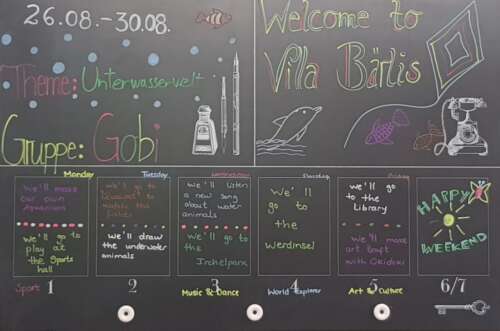 26.08.-30.08.
Theme: Unterwasserwelt
Gruppe: Gobi
Welcome to
Villa Bärlis
Monday
Tuesday
Wednesday
Thursday
Friday
We'll make
our own
Aquarium
We'll go to
play at
the Sports
hall
We'll go to
to watch the
fishes
We'll draw
the underwater
animals
We'll listen
a new song
about water
animals
We'll go to
the
Irchelpark
We'll go
to
the
Werdinsel
We'll
go to
the
Library
We'll make
art craft
with Okidoki
HAPPY
WEEKEND
Sport
1
2
3
4
5
6/7
Music & Dance
World Explorer
Art & Culture